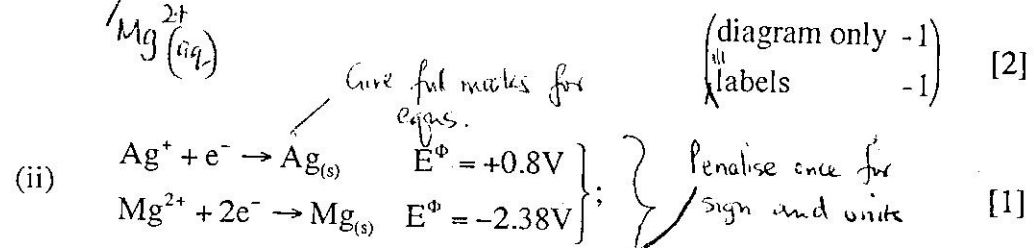 Mg²⁺(aq.)
(diagram only -1)
all labels -1 [2]
Give full marks for
eqns.
(ii) Ag⁺ + e⁻ → Ag(s) E^Φ = +0.8V
Mg²⁺ + 2e⁻ → Mg(s) E^Φ = −2.38V ;
Penalise once for
sign and units [1]